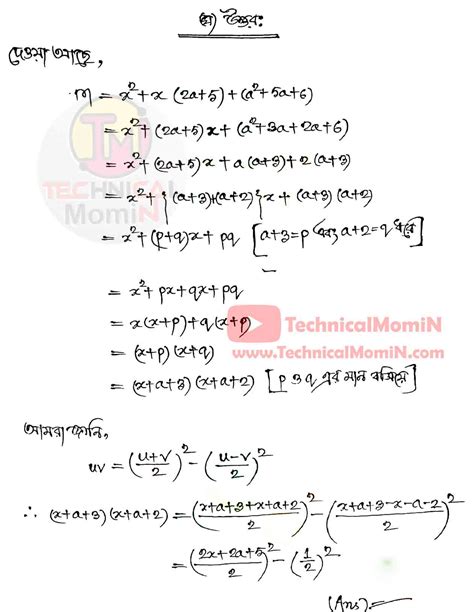 উত্তর:
দেওয়া আছে,
m = x² + x (2a+5) + (a² + 5a+6)
= x² + (2a+5) x + (a² + 3a + 2a + 6)
= x² + (2a+5) x + a (a+3) + 2 (a+3)
= x² + {(a+3)+(a+2)} x + (a+3) (a+2)
= x² + (p+q)x + pq [a+3=p এবং a+2=q ধরে]
= x² + px + qx + pq
= x(x+p) + q(x+p)
= (x+p) (x+q)
= (x+a+3) (x+a+2) [p ও q এর মান বসিয়ে]
TECHNICAL
MomiN
TechnicalMomiN
www.TechnicalMomiN.com
আমরা জানি,
uv = ((u+v)/2)² - ((u-v)/2)²
∴ (x+a+3) (x+a+2) = ((x+a+3+x+a+2)/2)² - ((x+a+3-x-a-2)/2)²
= ((2x+2a+5)/2)² - (1/2)²
(Ans)